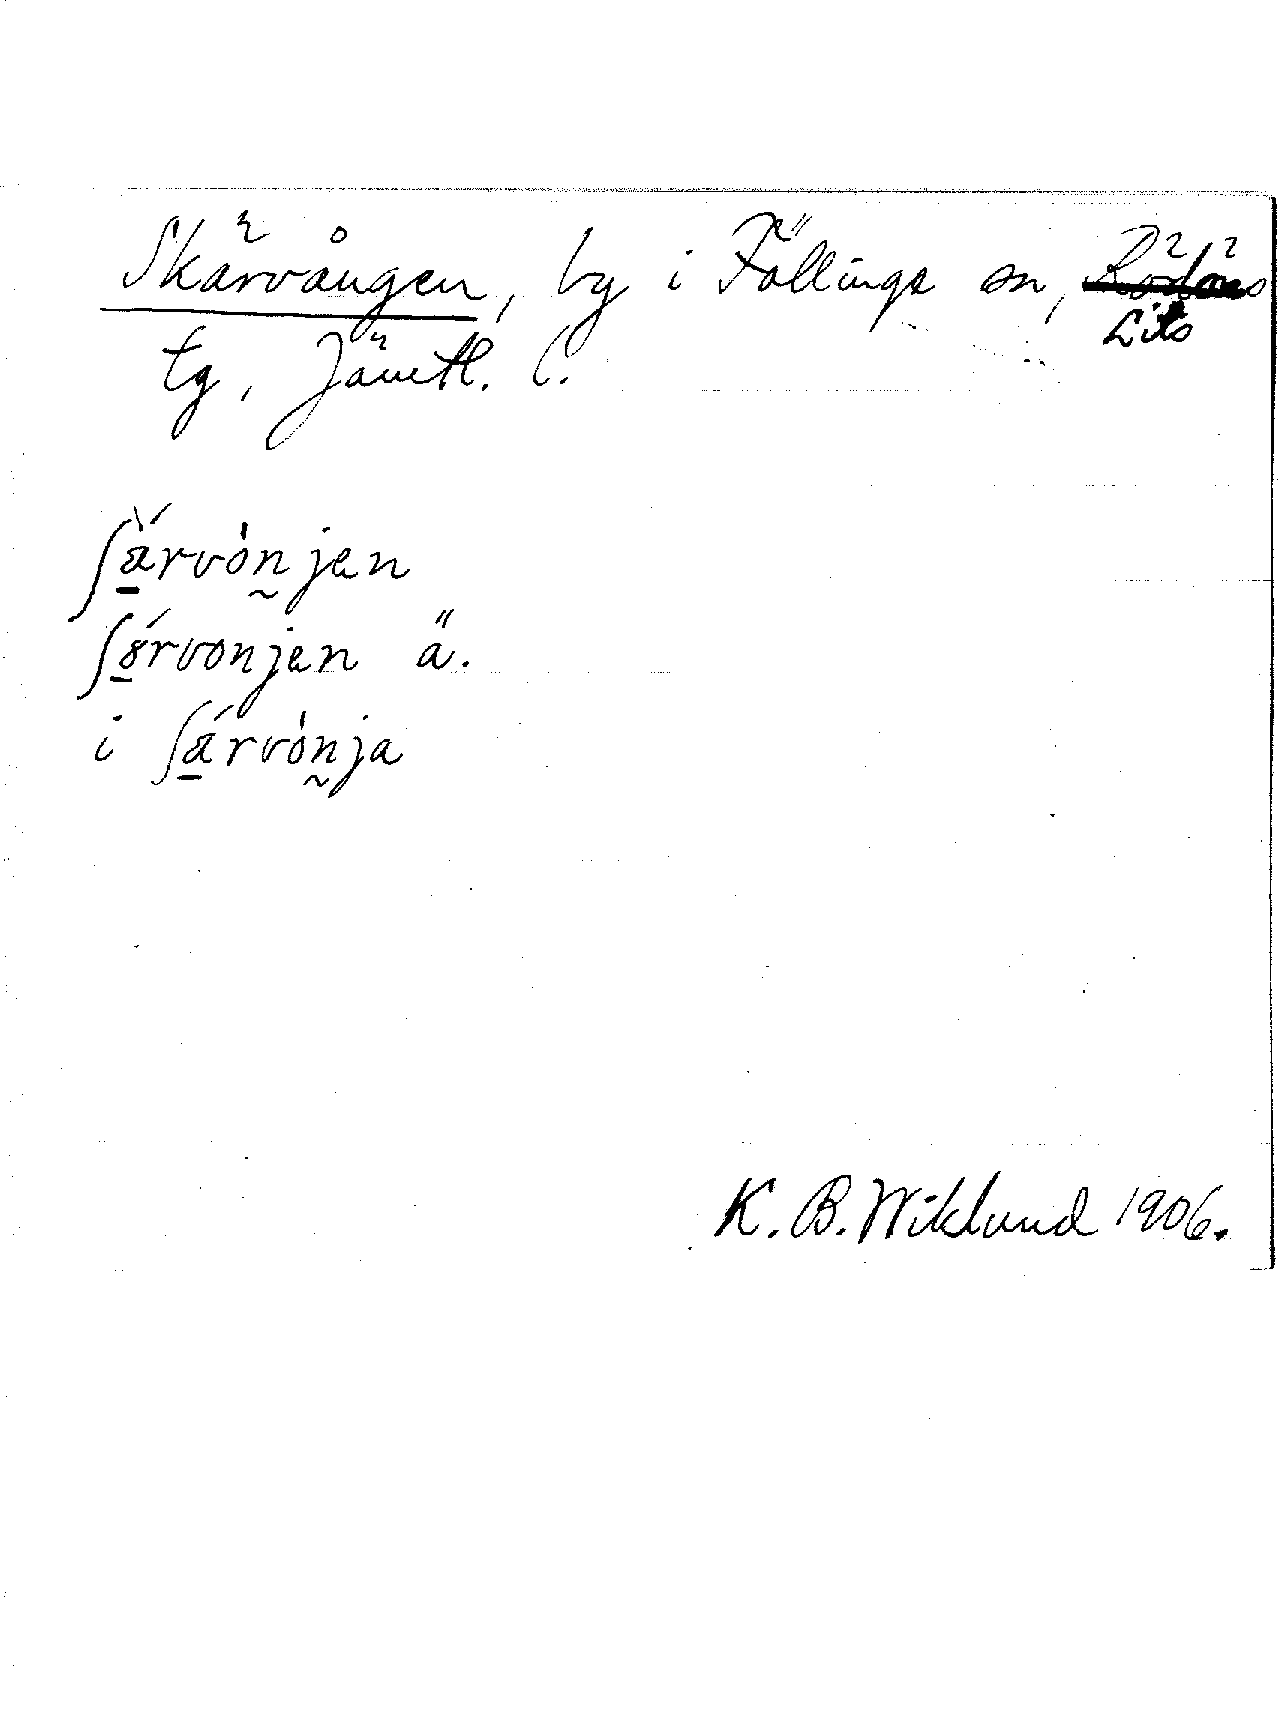 Skärvången, by i Föllinge sn, Rödöns
Lits
tg, Jämtl. l.
ʃa̱̋rvȯn̰jen
ʃɤ̱́rvonjen ä.
i ʃá̱rvȯn̰ja
K. B. Wiklund 1906.